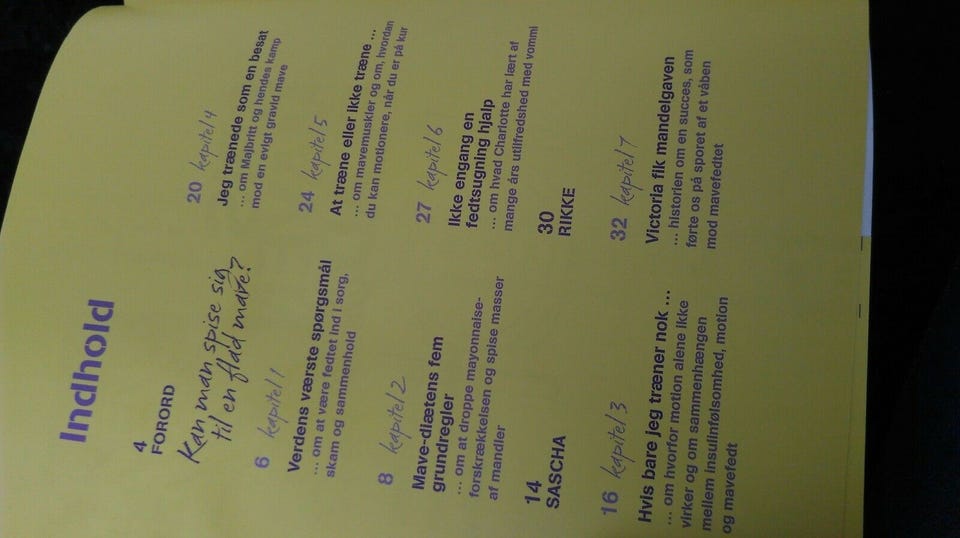 Indhold
4
FORORD
Kan man spise sig
til en flad mave?
6 kapitel 1
Verdens værste spørgsmål
... om at være fedtet ind i sorg,
skam og sammenhold
8 kapitel 2
Mave-diætens fem
grundregler
... om at droppe mayonnaise-
forskrækkelsen og spise masser
af mandler
14
SASCHA
16 kapitel 3
Hvis bare jeg træner nok ...
... om hvorfor motion alene ikke
virker og om sammenhængen
mellem insulinfølsomhed, motion
og mavefedt
20 kapitel 4
Jeg trænede som en besat
... om Majbritt og hendes kamp
mod en evigt gravid mave
24 kapitel 5
At træne eller ikke træne ...
... om mavemuskler og om, hvordan
du kan motionere, når du er på kur
27 kapitel 6
Ikke engang en
fedtsugning hjalp
... om hvad Charlotte har lært af
mange års utilfredshed med vommi
30
RIKKE
32 kapitel 7
Victoria fik mandelgaven
... historien om en succes, som
førte os på sporet af et våben
mod mavefedtet